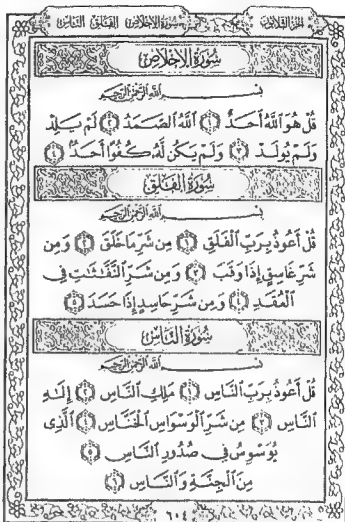 سورة الإخلاص الفلق الناس
الجزء الثلاثون
سُورَةُ الإِخْلَاصِ
بِسْمِ اللَّهِ الرَّحْمَٰنِ الرَّحِيمِ
قُلْ هُوَ اللَّهُ أَحَدٌ ١ اللَّهُ الصَّمَدُ ٢ لَمْ يَلِدْ
وَلَمْ يُولَدْ ٣ وَلَمْ يَكُن لَّهُ كُفُوًا أَحَدٌ ٤
سُورَةُ الفَلَقِ
بِسْمِ اللَّهِ الرَّحْمَٰنِ الرَّحِيمِ
قُلْ أَعُوذُ بِرَبِّ الْفَلَقِ ١ مِن شَرِّ مَا خَلَقَ ٢ وَمِن
شَرِّ غَاسِقٍ إِذَا وَقَبَ ٣ وَمِن شَرِّ النَّفَّاثَاتِ فِي
الْعُقَدِ ٤ وَمِن شَرِّ حَاسِدٍ إِذَا حَسَدَ ٥
سُورَةُ النَّاسِ
بِسْمِ اللَّهِ الرَّحْمَٰنِ الرَّحِيمِ
قُلْ أَعُوذُ بِرَبِّ النَّاسِ ١ مَلِكِ النَّاسِ ٢ إِلَٰهِ
النَّاسِ ٣ مِن شَرِّ الْوَسْوَاسِ الْخَنَّاسِ ٤ الَّذِي
يُوَسْوِسُ فِي صُدُورِ النَّاسِ ٥
مِنَ الْجِنَّةِ وَالنَّاسِ ٦
٦٠٤